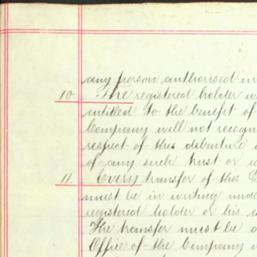 any person authorised in
10. The registered holder w
entitled to the benefit of
Company will not recogni
respect of this debenture
of any such trust or
11. Every transfer of this D
must be in writing unde
registered holder or his
The transfer must be
Office of the Company